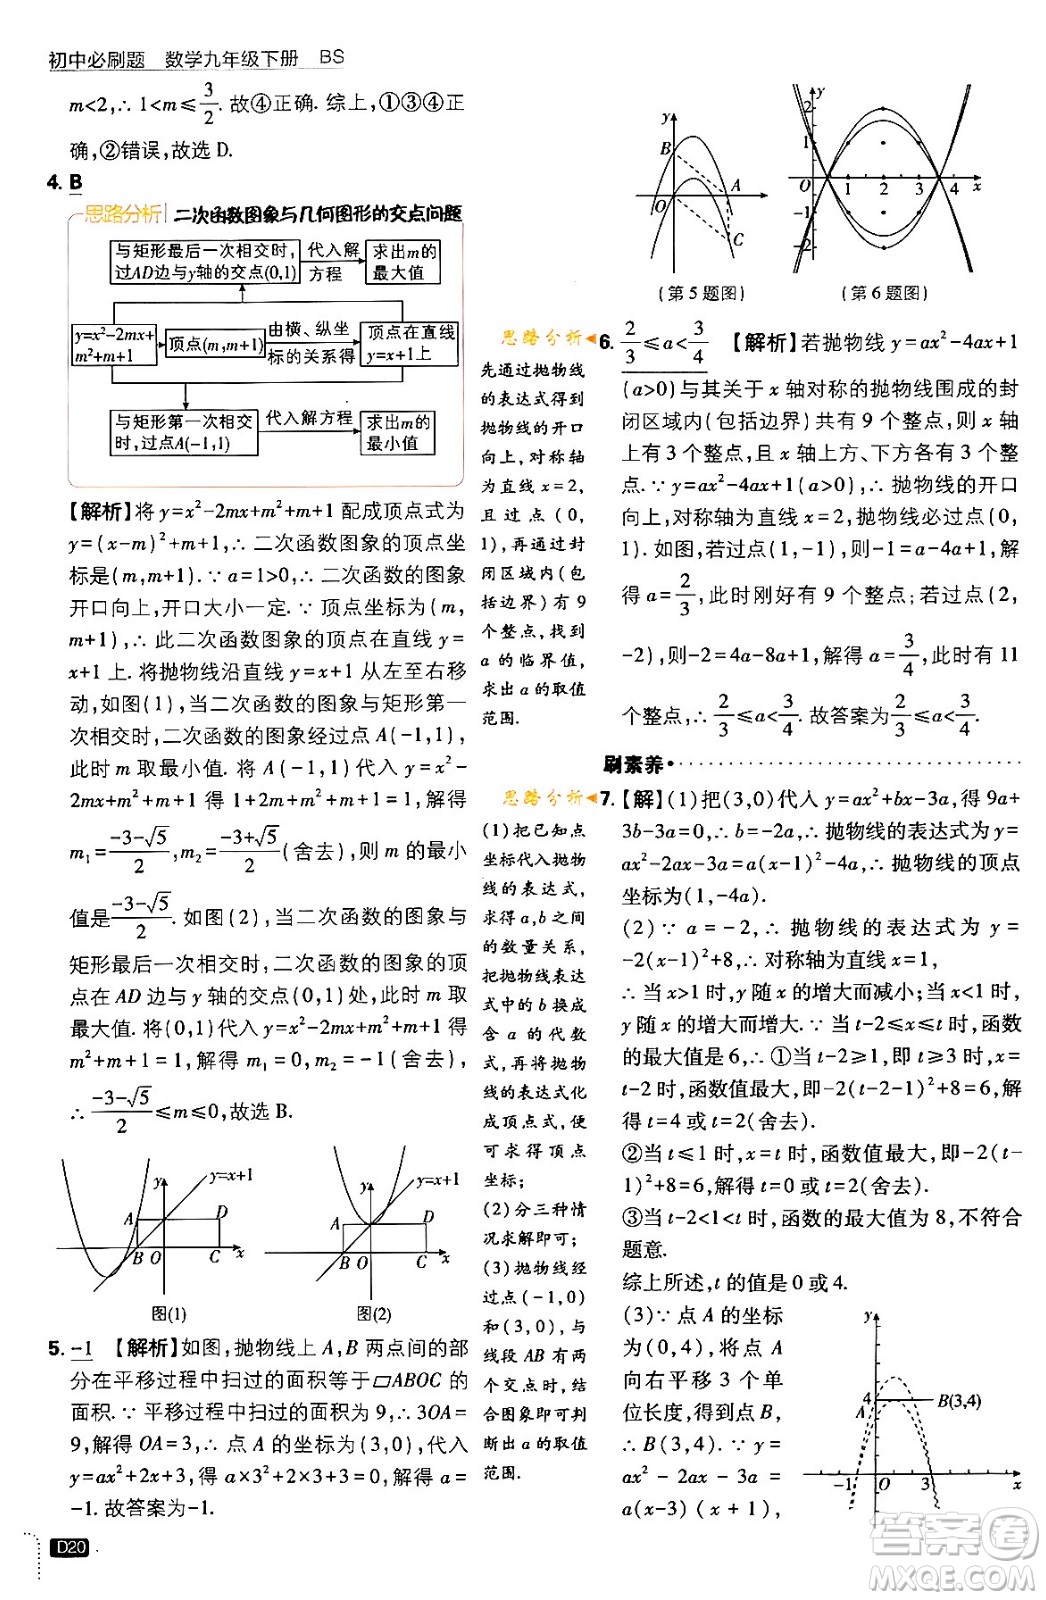 初中必刷题 数学九年级下册 BS
m<2,∴ 1<m≤3/2. 故④正确. 综上,①③④正
确,②错误,故选 D.
4. B
思路分析 二次函数图象与几何图形的交点问题
与矩形最后一次相交时,
过AD边与y轴的交点(0,1)
代入解
方程
求出m的
最大值
y=x²-2mx+
m²+m+1
顶点(m,m+1)
由横、纵坐
标的关系得
顶点在直线
y=x+1上
与矩形第一次相交
时,过点A(-1,1)
代入解方程
求出m的
最小值
【解析】将 y=x²-2mx+m²+m+1 配成顶点式为
y=(x-m)²+m+1,∴ 二次函数图象的顶点坐
标是(m,m+1). ∵ a=1>0,∴ 二次函数的图象
开口向上,开口大小一定. ∵ 顶点坐标为(m,
m+1),∴ 此二次函数图象的顶点在直线 y=
x+1 上. 将抛物线沿直线 y=x+1 从左往右移
动,如图(1),当二次函数的图象与矩形第一
次相交时,二次函数的图象经过点 A(-1,1),
此时 m 取最小值. 将 A(-1,1)代入得 m²+
2m+m²+m+1=0, 解得
m₁=(-3-√5)/2,m₂=(-3+√5)/2(舍去),则 m 的最小
值是(-3-√5)/2. 如图(2),当二次函数的图象与
矩形最后一次相交时,二次函数的图象的顶
点在 AD 边与 y 轴的交点(0,1)处,此时 m 取
最大值. 将(0,1)代入 y=x²-2mx+m²+m+1 得
m²+m+1=1,解得 m₁=0,m₂=-1(舍去),
∴ (-3-√5)/2≤m≤0,故选 B.
y y=x+1 A D B O C x
图(1)
y y=x+1 A D B O C x
图(2)
5. -1 【解析】如图,抛物线上 A,B 两点间的部
分在平移过程中扫过的面积等于▱ABOC 的
面积. ∵ 平移过程中扫过的面积为 9,∴ 3OA=
9,解得 OA=3,∴ 点 A 的坐标为(3,0),代入
y=ax²+2x+3,得 a×3²+2×3+3=0,解得 a=
-1. 故答案为-1.
D20
y B A O x C
(第 5 题图)
y 2 1 O 1 2 3 4 x -1 -2
(第 6 题图)
思路分析
先通过抛物线
的表达式得到
抛物线的开口
向上,对称轴
为直线 x=2,
且过点(0,
1),再通过封
闭区域内(包
括边界)有 9
个整点,找到
a 的临界值,
求出 a 的取值
范围.
6. 2/3≤a<3/4 【解析】若抛物线 y=ax²-4ax+1
(a>0)与其关于 x 轴对称的抛物线围成的封
闭区域内(包括边界)共有 9 个整点,则 x 轴
上有 3 个整点,x 轴上方、下方各有 3 个整
点. ∵ y=ax²-4ax+1(a>0),∴ 抛物线的开口
向上,对称轴为直线 x=2,抛物线必过点(0,
1). 如图,若过点(1,-1),则-1=a-4a+1,解
得 a=2/3,此时刚好有 9 个整点;若过点(2,
-2),则-2=4a-8a+1,解得 a=3/4,此时有 11
个整点,∴ 2/3≤a<3/4. 故答案为2/3≤a<3/4.
刷素养
思路分析
(1)把已知点
坐标代入抛物
线的表达式,
求得 a,b 之间
的数量关系,
把抛物线表达
式中的 b 换成
含 a 的代数
式,再将抛物
线的表达式化
成顶点式,便
可求得顶点
坐标;
(2)分三种情
况求解即可;
(3)抛物线经
过点(-1,0)
和(3,0),与
线段 AB 有两
个交点,则结
合图象即可判
断出 a 的取值
范围.
7.【解】(1)把(3,0)代入 y=ax²+bx-3a,得 9a+
3b-3a=0,∴ b=-2a,∴ 抛物线的表达式为 y=
ax²-2ax-3a=a(x-1)²-4a,∴ 抛物线的顶点
坐标为(1,-4a).
(2)∵ a=-2,∴ 抛物线的表达式为 y=
-2(x-1)²+8,∵ 对称轴为直线 x=1,
∴ 当 x>1 时,y 随 x 的增大而减小;当 x<1 时,
y 随 x 的增大而增大. ∵ 当 t-2≤x≤t 时,函数
的最大值是 6,∴ ①当 t-2≥1,即 t≥3 时,x=
t-2 时,函数值最大,即-2(t-2-1)²+8=6,解
得 t=4 或 t=2(舍去).
②当 t≤1 时,x=t 时,函数值最大,即-2(t-
1)²+8=6,解得 t=0 或 t=2(舍去).
③当 t-2<1<t 时,函数的最大值为 8,不符合
题意.
综上所述,t 的值是 0 或 4.
(3)∵ 点 A 的坐标
为(0,4),将点 A
向右平移 3 个单
位长度,得到点 B,
∴ B(3,4). ∵ y=
ax²-2ax-3a=
a(x-3)(x+1),
y 4 A B(3,4) -1 O 3 x
答案圈
MXQE.COM